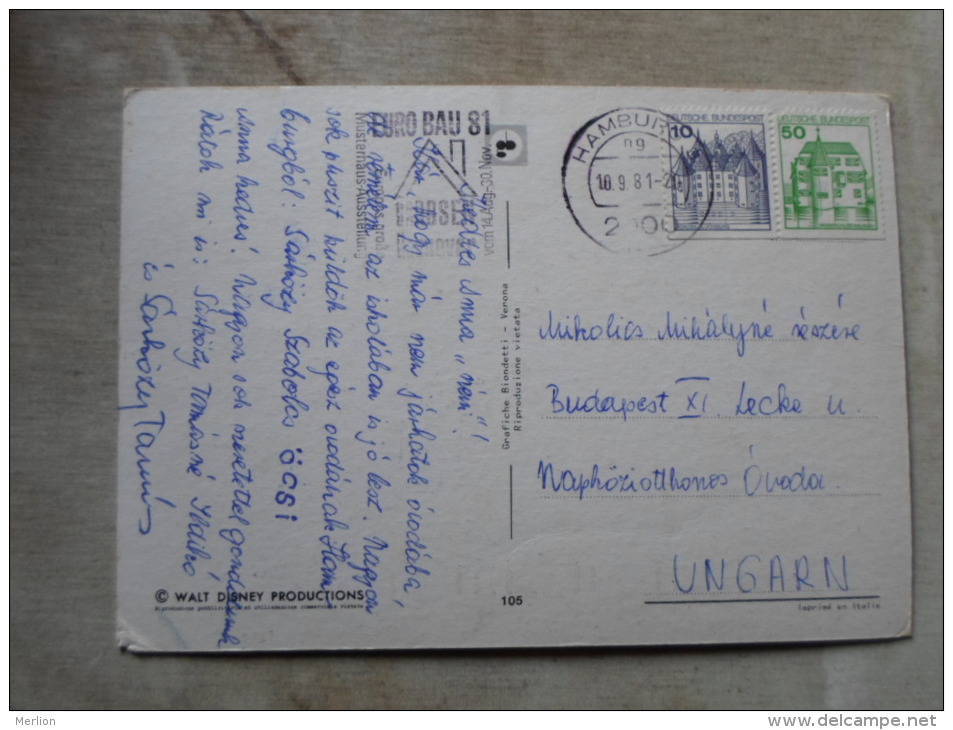 EURO BAU 81
Musterhaus-Ausstellung
vom 14.Aug.-30.Nov.
HAMBURG
10.9.81-2
10
DEUTSCHE BUNDESPOST
50
DEUTSCHE BUNDESPOST
Kedves Anna „néni"!
hogy már nem járhatok óvodába,
de remélem az iskolában is jó lesz. Nagyon
sok puszit küldök az egész ovodának Ham-
burgból: Sárközy Szabolcs ÖCSI
Anna kedves! Nagyon sok szeretettel gondolunk
Rátok mi is: Sárközy Tamásné Ildikó
és Sárközy Tamás
Grafiche Biondetti - Verona
Riproduzione vietata
Mikolics Mihályné részére
Budapest XI. Lecke u.
Napköziotthonos Óvoda.
UNGARN
© WALT DISNEY PRODUCTIONS
105
Imprimé en Italie
Merlion
http://www.delcampe.net